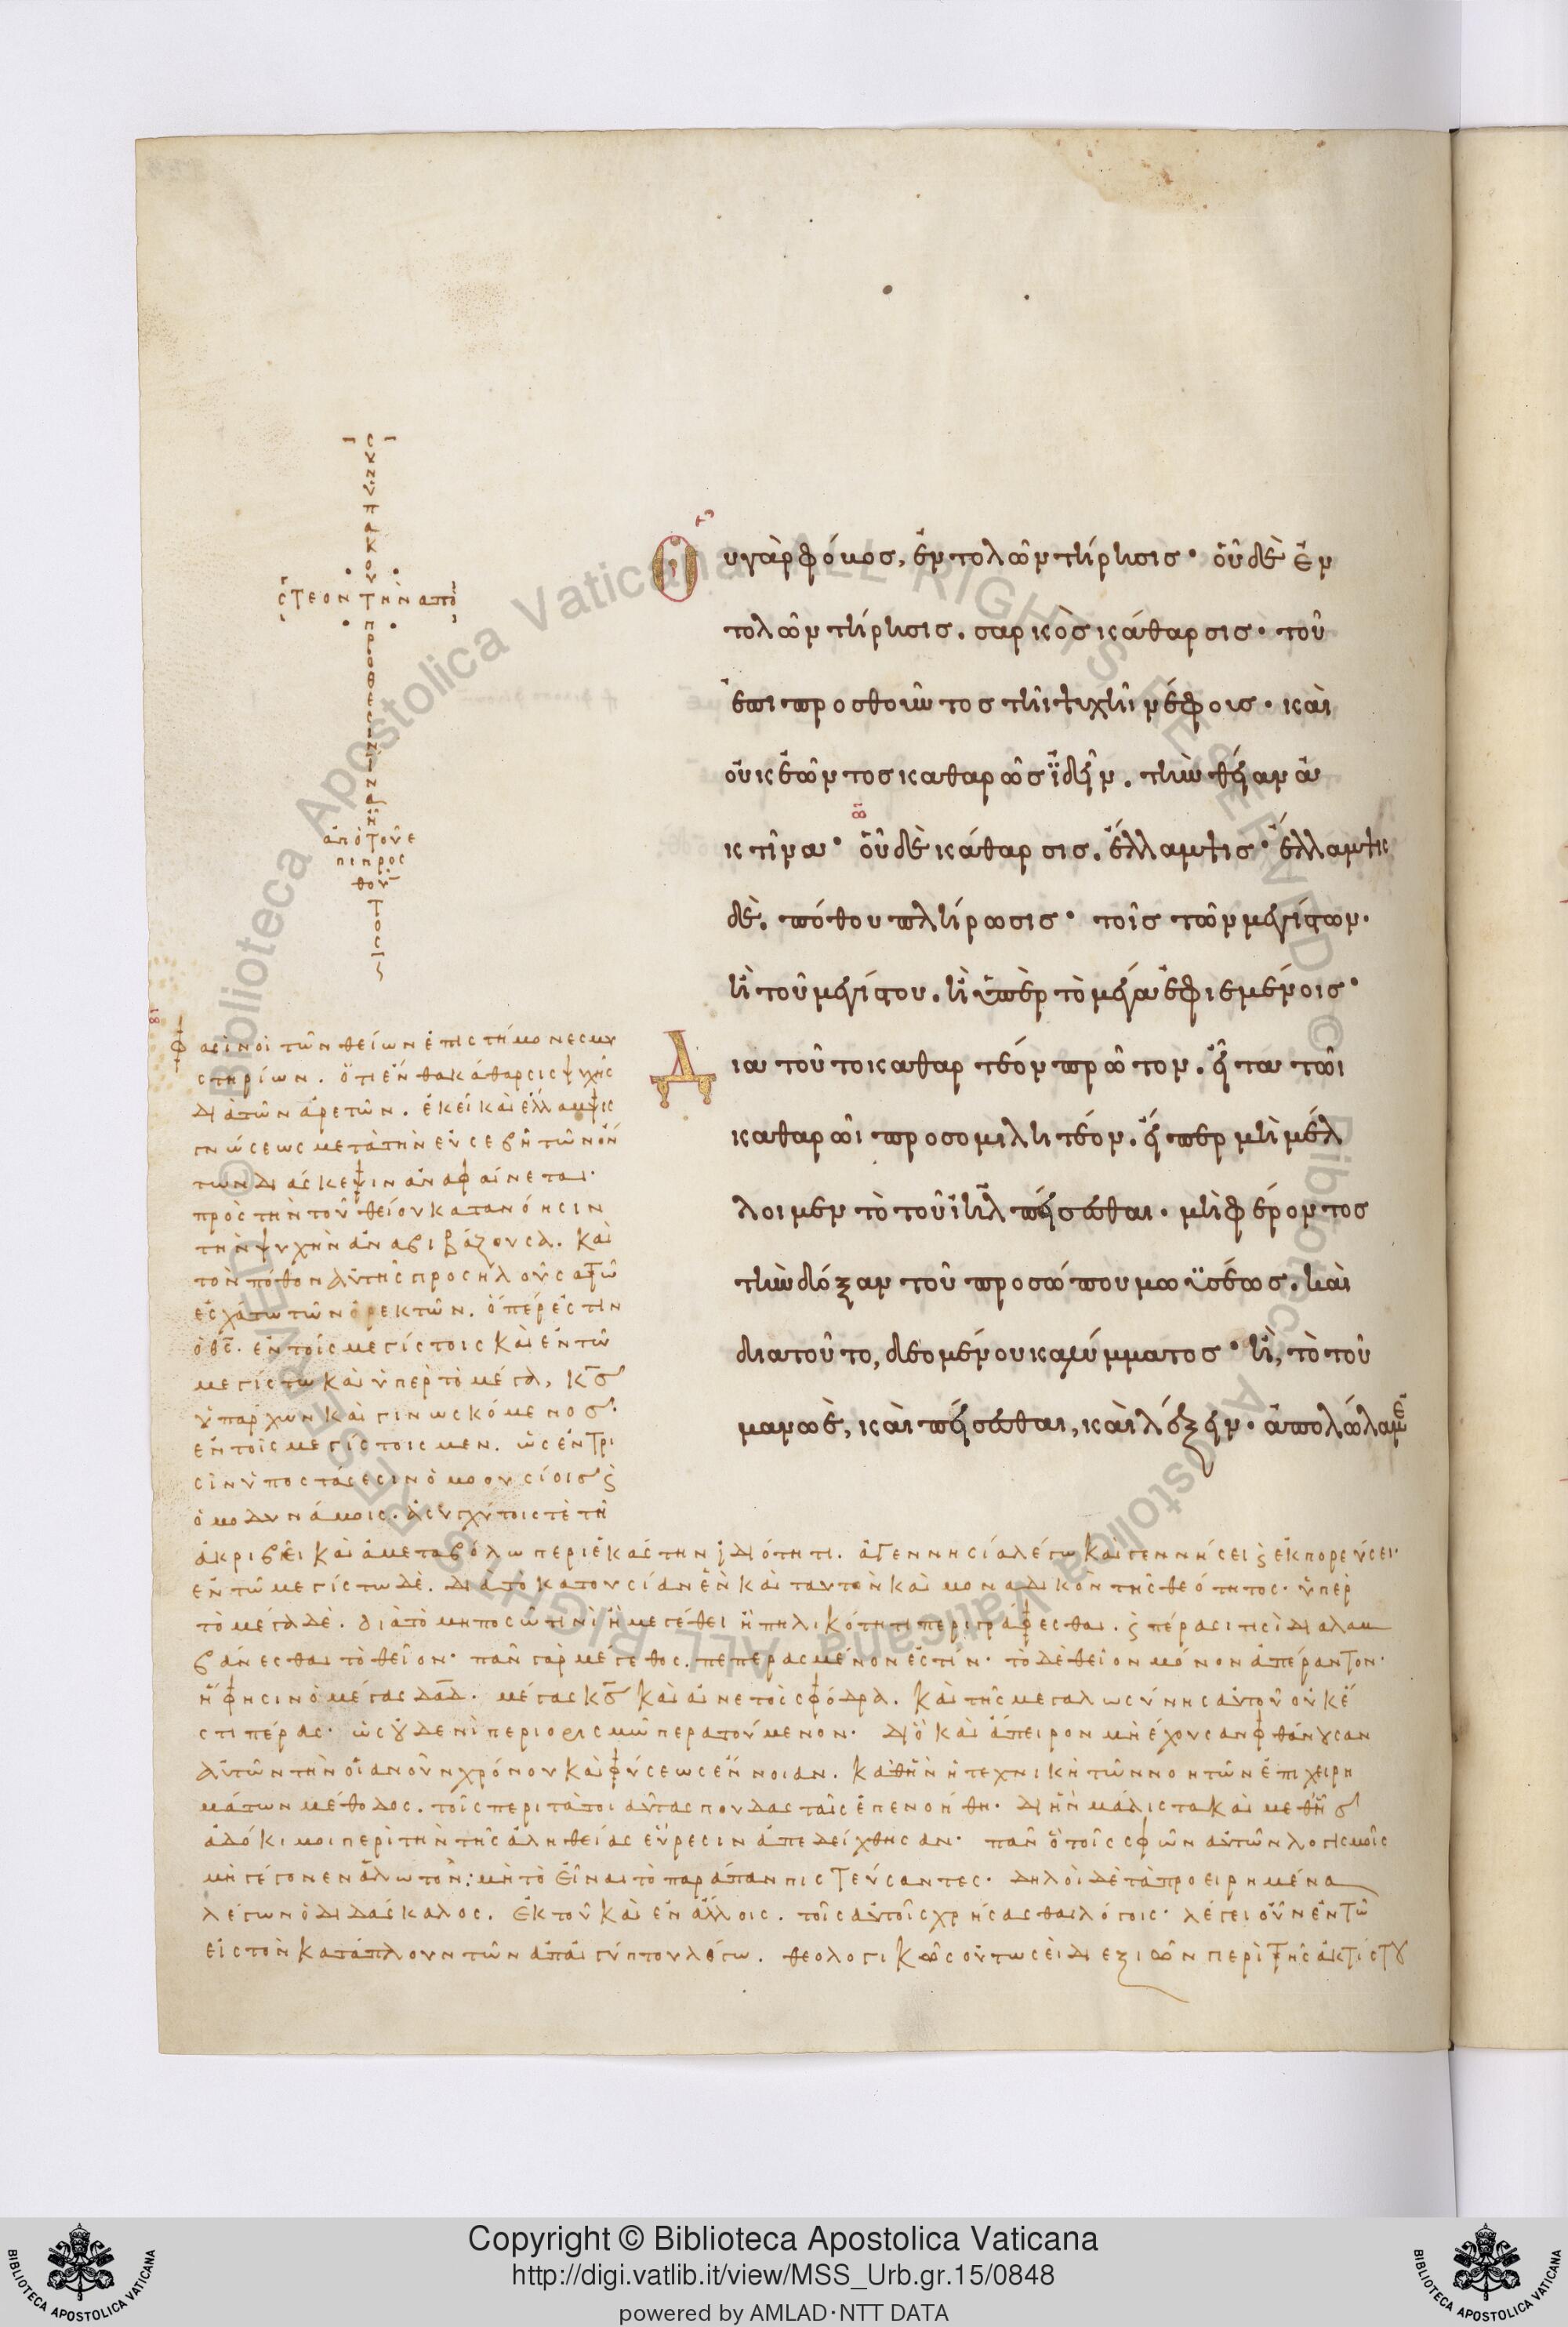 Οὗ γὰρ φόβος, ἐντολῶν τήρησις· οὗ δὲ ἐν
τολῶν τήρησις. σαρκὸς κάθαρσις· τοῦ
ἐπιπροσθοῦντος τῆι ψυχῆι νέφους· καὶ
οὐκ ἐῶντος καθαρῶς ἰδεῖν. τὴν θείαν ἀ
κτῖνα· οὗ δὲ κάθαρσις. ἔλλαμψις· ἔλλαμψις
δὲ. πόθου πλήρωσις· τοῖς τῶν μεγίστων.
ἢ τοῦ μεγίστου. ἢ ὑπὲρ τὸ μέγα ἐφιεμένοις·
Διὰ τοῦτο καθαρτέον πρῶτον. εἶτα τῶι
καθαρῶι προσομιλητέον. εἴπερ μὴ μέλ
λοιμεν τὸ τοῦ ἰηλ πείσεσθαι. μὴ φέροντος
τὴν δόξαν τοῦ προσώπου μωϋσέως. καὶ
διατοῦτο, δεομένου καλύμματος· ἢ, τὸ τοῦ
μανωὲ, καὶ πείσεσθαι, καὶ λέξειν. ἀπολώλαμε
στέον τὴν ἀπὸ
ἀπὸ τοῦ ἐ
πιπροσ
θοῦ
φασὶν οἱ τῶν θείων ἐπιστήμονες μυ
στηρίων. ὅτι ἔνθα κάθαρσις ψυχῆς
διὰ τῶν ἀρετῶν. ἐκεῖ καὶ ἔλλαμψις
γνώσεως μετὰ τὴν εὐσεβῆ τῶν ὄν
των διάσκεψιν ἀναφαίνεται·
πρὸς τὴν τοῦ θείου κατανόησιν
τὴν ψυχὴν ἀναβιβάζουσα. καὶ
τὸν πόθον αὐτῆς προσηλοῦσα τῶ
ἐσχάτω τῶν ὀρεκτῶν. ὅπερ ἐστὶν
ὁ θς. ἐν τοῖς μεγίστοις καὶ ἐν τῶ
μεγίστω καὶ ὑπὲρ τὸ μέγα, κς
ὑπάρχων καὶ γινωσκόμενος.
ἐν τοῖς μεγίστοις μὲν. ὡς ἐν τρι
σὶν ὑποστάσεσιν ὁμοουσίοις ϗ
ὁμοδυνάμοις. ἀσυγχύτοις τὲ τῆ
ἀκριβεῖ καὶ ἀμεταβόλω περὶ ἑκάστην ἰδιότητι. ἀγεννησία λέγω καὶ γεννήσει ϗ ἐκπορεύσει·
ἐν τῶ μεγίστω δὲ. διὰ τὸ κατ' οὐσίαν ἓν καὶ ταυτὸν καὶ μοναδικὸν τῆς θεότητος· ὑπὲρ
τὸ μέγα δὲ. διὰ τὸ μὴ ποσῶ τινὶ ἢ μεγέθει ἢ πηλικότητι περιγράφεσθαι. ϗ πέρασί τισι διαλαμ
βάνεσθαι τὸ θεῖον· πᾶν γὰρ μέγεθος. πεπερασμένον ἐστίν· τὸ δὲ θεῖον μόνον ἀπέραντον·
ἧ φησὶν ὁ μέγας δαδ. μέγας κς καὶ αἰνετὸς σφόδρα. καὶ τῆς μεγαλωσύνης αὐτοῦ οὐκ ἔ
στι πέρας· ὡς οὐδενὶ περιορισμῶ περατούμενον. διὸ καὶ ἄπειρον μὴ ἔχουσαν φθάνουσαν
αὐτῶν τὴν οἱανοῦν χρόνου καὶ φύσεως ἔννοιαν. καθ' ἣν ἡ τεχνικὴ τῶν νοητῶν ἐπιχειρη
μάτων μέθοδος. τοῖς περὶ τὰ τοιαῦτα σπουδασταῖς ἐπενοήθη. δι' ἣν μάλιστα καὶ
ἀδόκιμοι περὶ τὴν τῆς ἀληθείας εὕρεσιν ἀπεδείχθησαν. πᾶν ὃ τοῖς σφῶν αὐτῶν λογισμοῖς
μὴ γέγονεν ἁλωτὸν: μὴ τὸ εἶναι τὸ παράπαν πιστεύσαντες. δηλοῖ δὲ τὰ προειρημένα
λέγων ὁ διδάσκαλος. ἐκ τοῦ καὶ ἐν ἄλλοις. τοῖς αὐτοῖς χρήσασθαι λόγοις· λέγει οὖν ἐν τῶ
εἰς τὸν κατάπλουν τῶν ἀπ' αἰγύπτου λόγω. θεολογικῶς οὕτωσὶ διεξιὼν περὶ τῆς ἀκτίστου
Copyright © Biblioteca Apostolica Vaticana
http://digi.vatlib.it/view/MSS_Urb.gr.15/0848
powered by AMLAD·NTT DATA
BIBLIOTECA APOSTOLICA VATICANA
BIBLIOTECA APOSTOLICA VATICANA